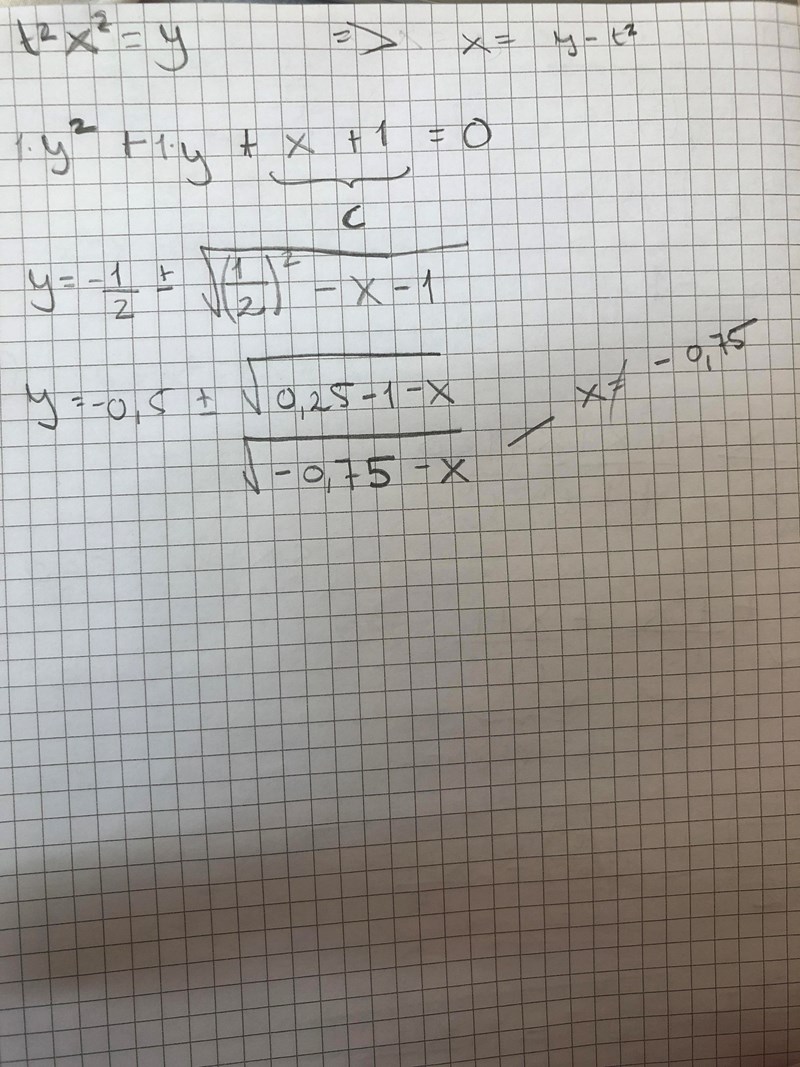 t² x² = y => x = y - t²
1·y² + 1·y + x + 1 = 0
c
y = -1/2 ± √((1/2)² - x - 1)
y = -0,5 ± √(0,25 - 1 - x)
√(-0,75 - x) x ≠ -0,75